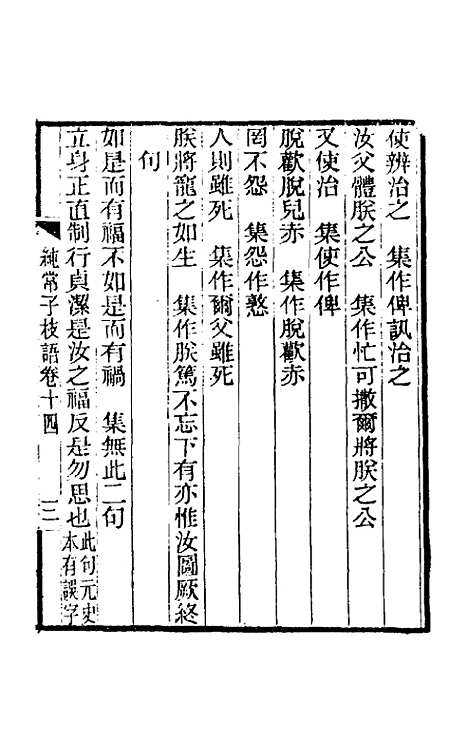 使辨治之　集作俾訊治之
汝父體朕之公　集作忙可撒爾將朕之公
又使治　集使作俾
脫歡脫兒赤　集作脫歡赤
罔不怨　集怨作憝
人則雖死　集作爾父雖死
朕將寵之如生　集作朕篤不忘下有亦惟汝圖厥終
句
如是而有福不如是而有禍　集無此二句
立身正直制行貞潔是汝之福反是勿思也此句元史本有誤字
純常子枝語卷十四　三